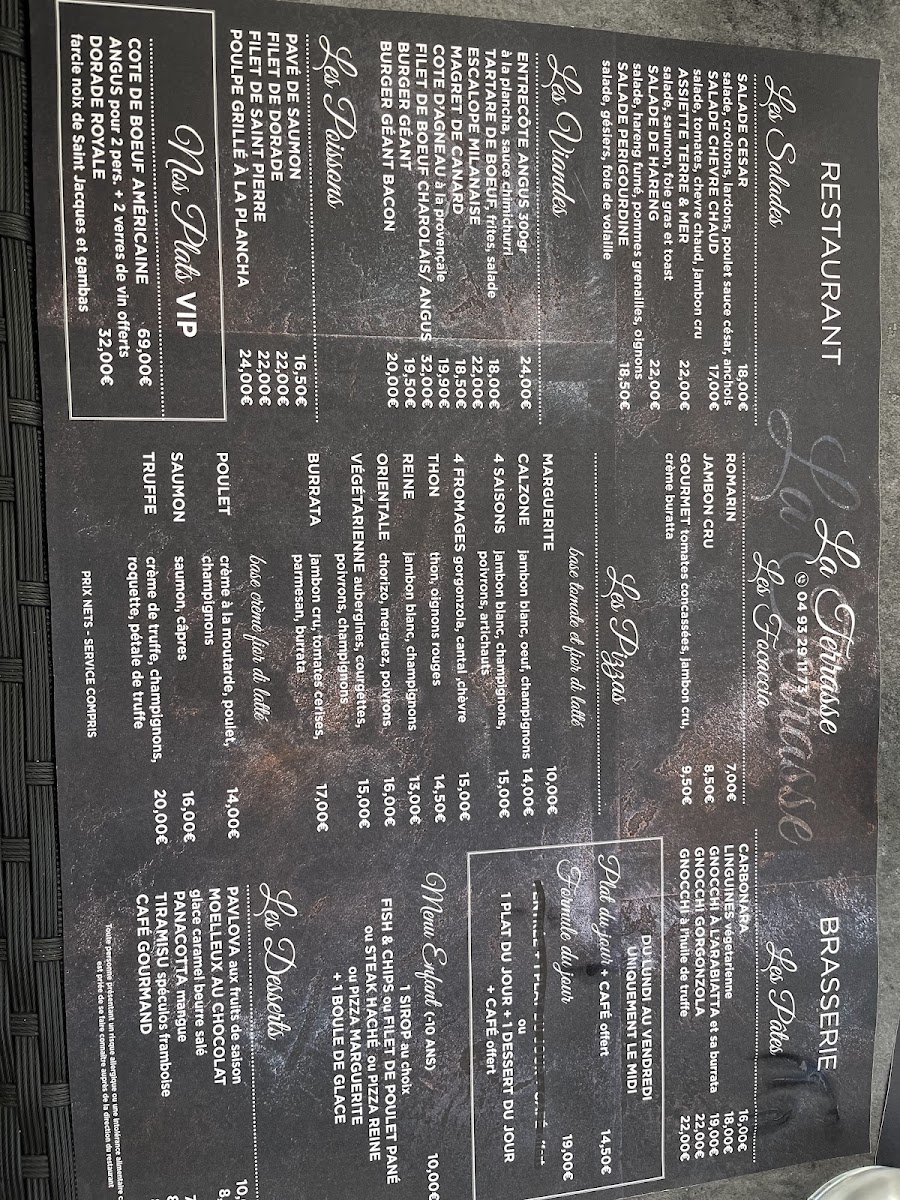 RESTAURANT
La Terrasse
La Terrasse
✆ 04 93 29 11 73
BRASSERIE
Les Salades
SALADE CESAR 18,00€
salade, croûtons, lardons, poulet sauce césar, anchois
SALADE CHEVRE CHAUD 17,00€
salade, tomates, chevre chaud, jambon cru
ASSIETTE TERRE & MER 22,00€
salade, saumon, foie gras et toast
SALADE DE HARENG 22,00€
salade, hareng fumé, pommes grenailles, oignons
SALADE PERIGOURDINE 18,50€
salade, gésiers, foie de volaille
Les Viandes
ENTRECÔTE ANGUS 300gr 24,00€
à la plancha, sauce chimichurri
TARTARE DE BOEUF, frites, salade 18,00€
ESCALOPE MILANAISE 22,00€
MAGRET DE CANARD 18,50€
COTE D'AGNEAU à la provençale 19,90€
FILET DE BOEUF CHAROLAIS/ ANGUS 32,00€
BURGER GÉANT 19,50€
BURGER GÉANT BACON 20,00€
Les Poissons
PAVÉ DE SAUMON 16,50€
FILET DE DORADE 22,00€
FILET DE SAINT PIERRE 22,00€
POULPE GRILLÉ À LA PLANCHA 24,00€
Nos Plats VIP
COTE DE BOEUF AMÉRICAINE 69,00€
ANGUS pour 2 pers. + 2 verres de vin offerts
DORADE ROYALE 32,00€
farcie noix de Saint Jacques et gambas
Les Focaccia
ROMARIN 7,00€
JAMBON CRU 8,50€
GOURMET tomates concassées, jambon cru, 9,50€
crème burratta
Les Pizzas
base tomate et fior di latté
MARGUERITE 10,00€
CALZONE jambon blanc, oeuf, champignons 14,00€
4 SAISONS jambon blanc, champignons, 15,00€
poivrons, artichauts
4 FROMAGES gorgonzola, cantal ,chèvre 15,00€
THON thon, oignons rouges 14,50€
REINE jambon blanc, champignons 13,00€
ORIENTALE chorizo, merguez, poivrons 16,00€
VÉGÉTARIENNE aubergines, courgettes, 15,00€
poivrons, champignons
BURRATA jambon cru, tomates cerises, 17,00€
parmesan, burrata
base crème fior di latté
POULET crème à la moutarde, poulet, 14,00€
champignons
SAUMON saumon, câpres 16,00€
TRUFFE crème de truffe, champignons, 20,00€
roquette, pétale de truffe
PRIX NETS - SERVICE COMPRIS
Les Pâtes
CARBONARA 16,00€
LINGUINES végetarienne 18,00€
GNOCCHI À L'ARABIATTA et sa burrata 19,00€
GNOCCHI GORGONZOLA 22,00€
GNOCCHI à l'huile de truffe 22,00€
DU LUNDI AU VENDREDI
UNIQUEMENT LE MIDI
Plat du jour + CAFÉ offert 14,50€
Formule du jour 19,00€
ou
1 PLAT DU JOUR + 1 DESSERT DU JOUR
+ CAFÉ offert
Menu Enfant (-10 ANS) 10,00€
1 SIROP au choix
FISH & CHIPS ou FILET DE POULET PANÉ
ou STEAK HACHÉ ou PIZZA REINE
ou PIZZA MARGUERITE
+ 1 BOULE DE GLACE
Les Desserts
PAVLOVA aux fruits de saison 10,
MOELLEUX AU CHOCOLAT 8,
glace caramel beurre salé
PANACOTTA mangue 7
TIRAMISU spéculos framboise 8
CAFÉ GOURMAND
Toute personne présentant un risque allergique ou une intolérance alimentaire
est priée de se faire connaître auprès de la direction de restaurant